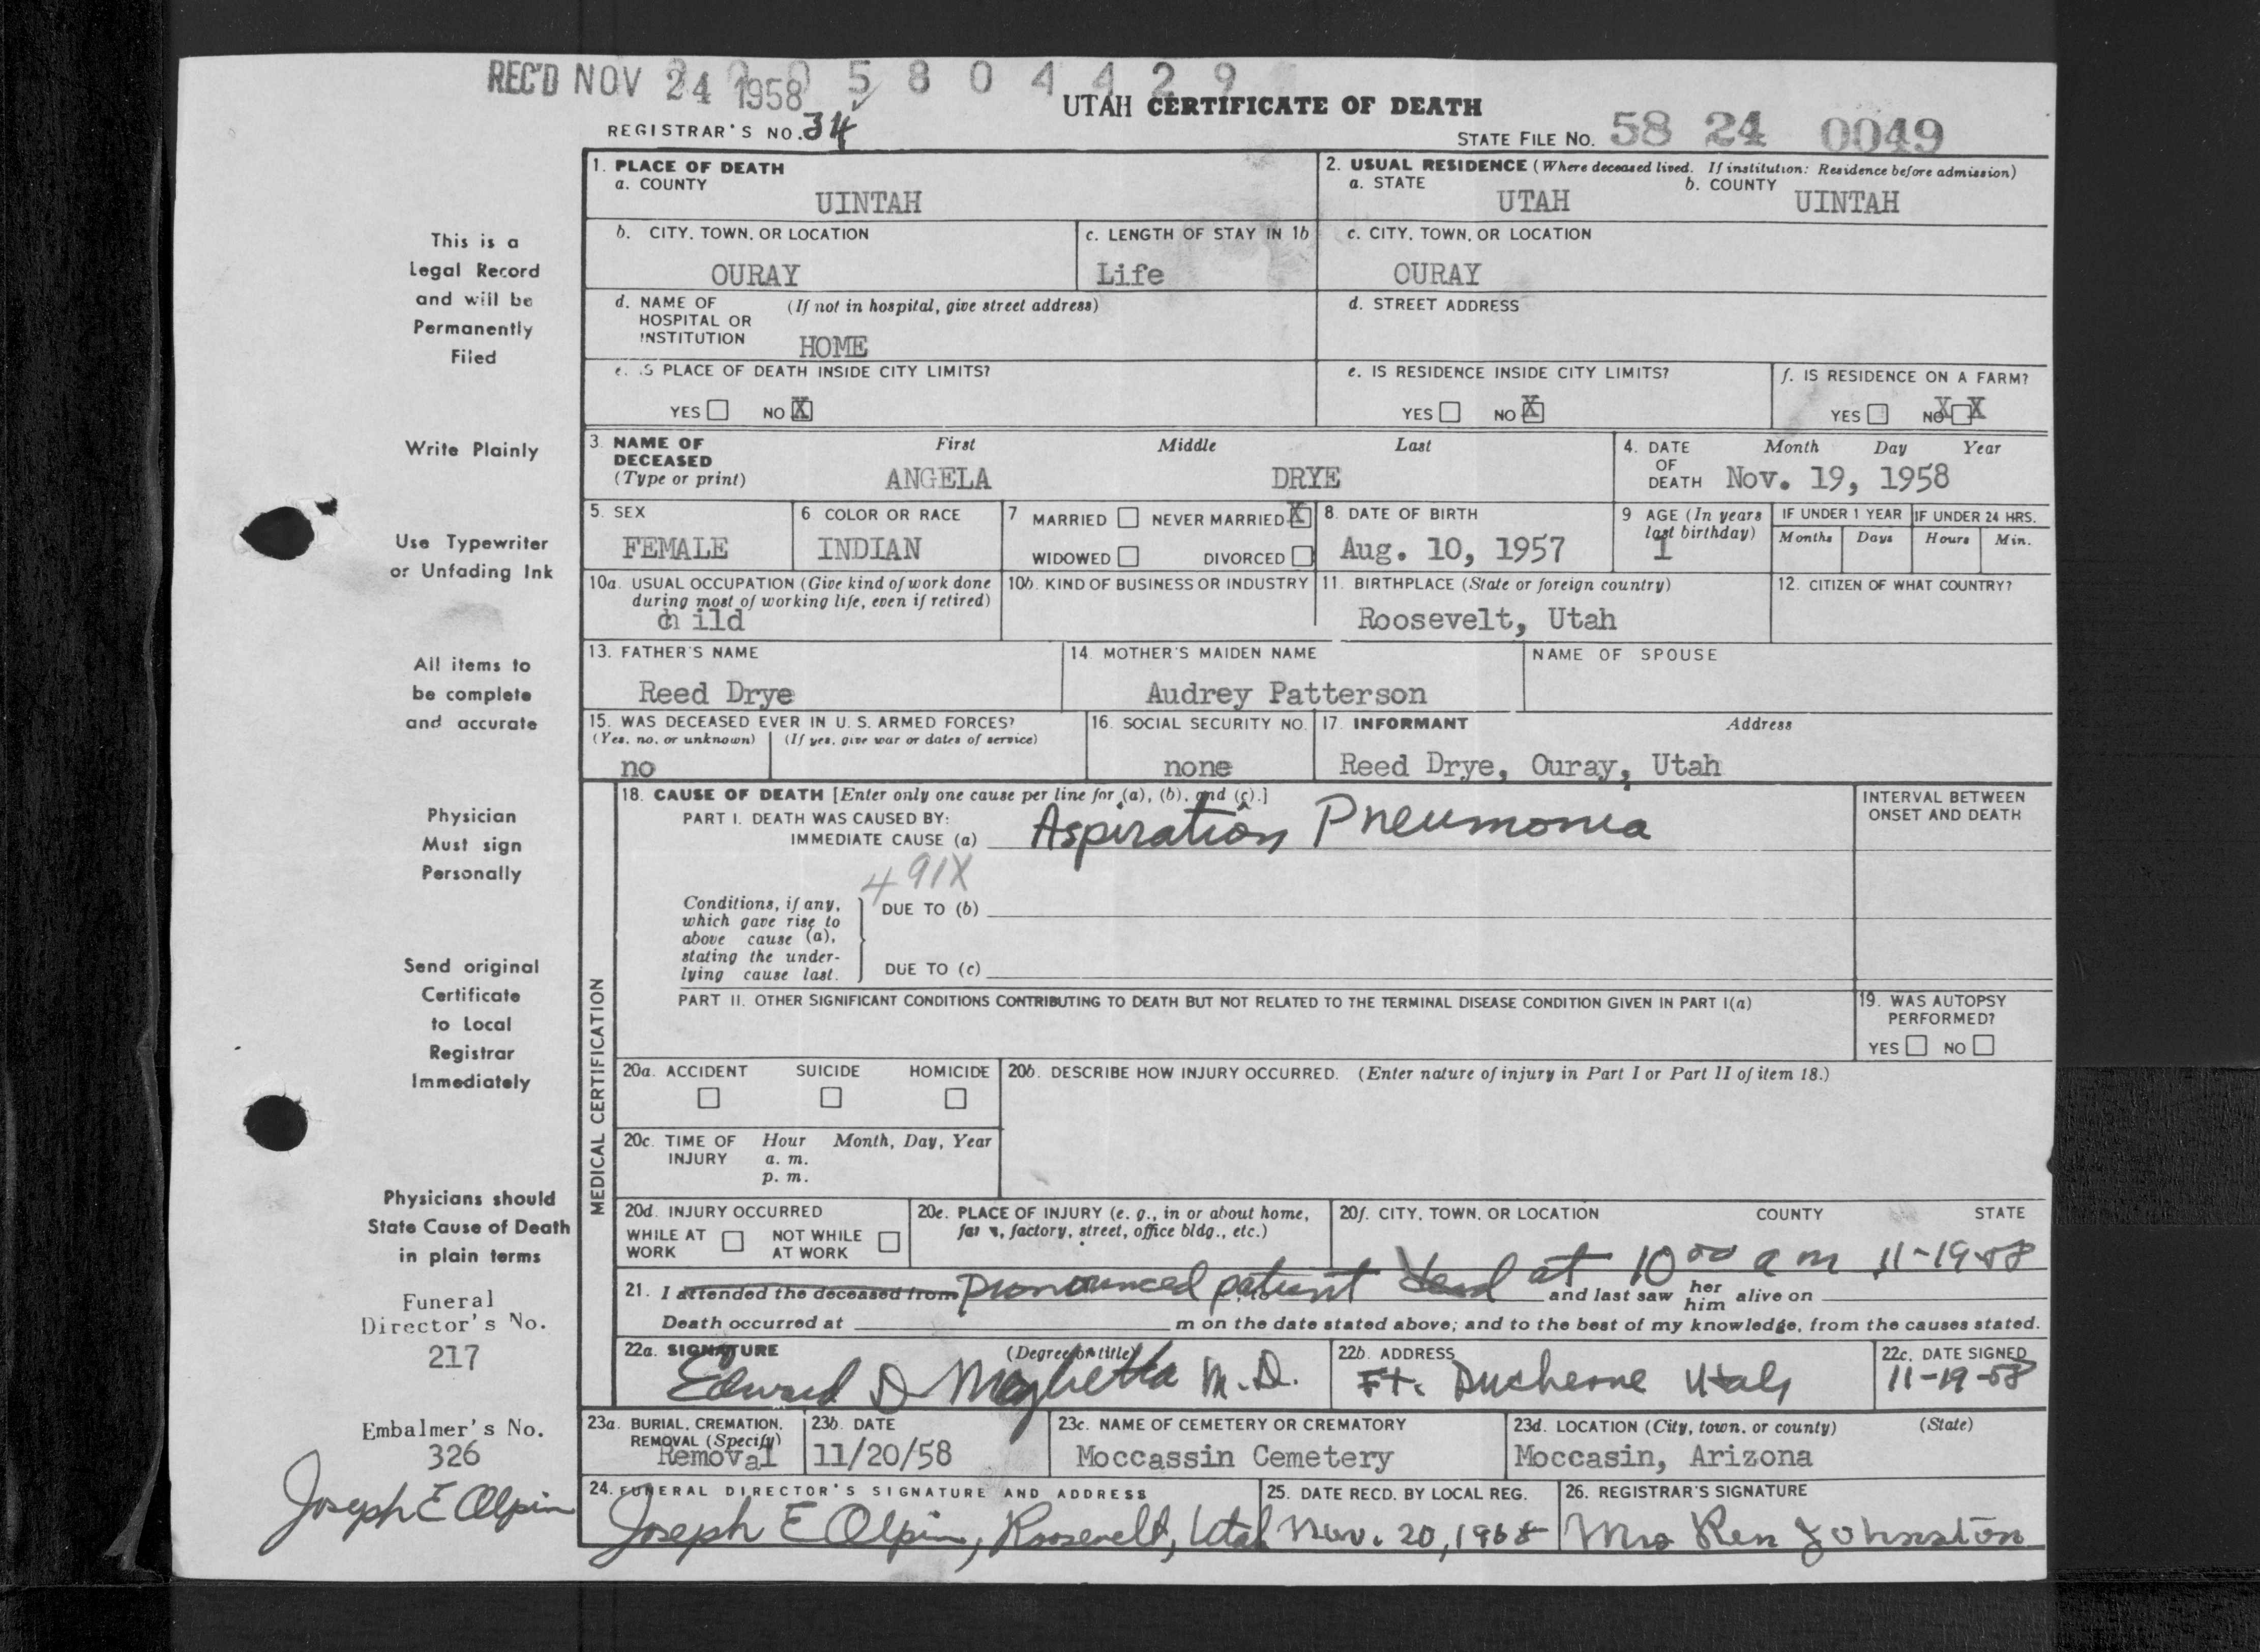 REC'D NOV 24 1958 5 8 0 4 4 2 9
UTAH CERTIFICATE OF DEATH
REGISTRAR'S NO. 34
STATE FILE NO. 58 24 0049
This is a
Legal Record
and will be
Permanently
Filed
Write Plainly
Use Typewriter
or Unfading Ink
All items to
be complete
and accurate
Physician
Must sign
Personally
Send original
Certificate
to Local
Registrar
Immediately
Physicians should
State Cause of Death
in plain terms
Funeral
Director's No.
217
Embalmer's No.
326
Joseph E Olpin
1. PLACE OF DEATH
a. COUNTY
UINTAH
2. USUAL RESIDENCE (Where deceased lived. If institution: Residence before admission)
a. STATE b. COUNTY
UTAH UINTAH
b. CITY, TOWN, OR LOCATION
OURAY
c. LENGTH OF STAY IN 1b
Life
c. CITY, TOWN, OR LOCATION
OURAY
d. NAME OF (If not in hospital, give street address)
HOSPITAL OR
INSTITUTION
HOME
d. STREET ADDRESS
e. IS PLACE OF DEATH INSIDE CITY LIMITS?
YES NO X
e. IS RESIDENCE INSIDE CITY LIMITS?
YES NO X
f. IS RESIDENCE ON A FARM?
YES NO X X
3. NAME OF First Middle Last
DECEASED
(Type or print) ANGELA DRYE
4. DATE Month Day Year
OF
DEATH Nov. 19, 1958
5. SEX
FEMALE
6 COLOR OR RACE
INDIAN
7 MARRIED NEVER MARRIED X
WIDOWED DIVORCED
8. DATE OF BIRTH
Aug. 10, 1957
9 AGE (In years
last birthday)
1
IF UNDER 1 YEAR
Months Days
IF UNDER 24 HRS.
Hours Min.
10a. USUAL OCCUPATION (Give kind of work done
during most of working life, even if retired)
child
10b. KIND OF BUSINESS OR INDUSTRY
11. BIRTHPLACE (State or foreign country)
Roosevelt, Utah
12. CITIZEN OF WHAT COUNTRY?
13. FATHER'S NAME
Reed Drye
14. MOTHER'S MAIDEN NAME
Audrey Patterson
NAME OF SPOUSE
15. WAS DECEASED EVER IN U. S. ARMED FORCES?
(Yes, no, or unknown) (If yes, give war or dates of service)
no
16. SOCIAL SECURITY NO.
none
17. INFORMANT Address
Reed Drye, Ouray, Utah
MEDICAL CERTIFICATION
18. CAUSE OF DEATH [Enter only one cause per line for (a), (b), and (c).]
PART I. DEATH WAS CAUSED BY:
IMMEDIATE CAUSE (a) Aspiration Pneumonia
INTERVAL BETWEEN
ONSET AND DEATH
491X
Conditions, if any,
which gave rise to
above cause (a),
stating the under-
lying cause last.
DUE TO (b)
DUE TO (c)
PART II. OTHER SIGNIFICANT CONDITIONS CONTRIBUTING TO DEATH BUT NOT RELATED TO THE TERMINAL DISEASE CONDITION GIVEN IN PART I(a)
19. WAS AUTOPSY
PERFORMED?
YES NO
20a. ACCIDENT SUICIDE HOMICIDE
20b. DESCRIBE HOW INJURY OCCURRED. (Enter nature of injury in Part I or Part II of item 18.)
20c. TIME OF Hour Month, Day, Year
INJURY a. m.
p. m.
20d. INJURY OCCURRED
WHILE AT WORK NOT WHILE AT WORK
20e. PLACE OF INJURY (e. g., in or about home,
farm, factory, street, office bldg., etc.)
20f. CITY, TOWN, OR LOCATION COUNTY STATE
21. I attended the deceased from pronounced patient dead at 10 00 a m 11-19-58 and last saw her him alive on
Death occurred at m on the date stated above; and to the best of my knowledge, from the causes stated.
22a. SIGNATURE (Degree or title)
Edward D M.D.
22b. ADDRESS
Ft. Duchesne Utah
22c. DATE SIGNED
11-19-58
23a. BURIAL, CREMATION,
REMOVAL (Specify)
Removal
23b. DATE
11/20/58
23c. NAME OF CEMETERY OR CREMATORY
Moccassin Cemetery
23d. LOCATION (City, town, or county) (State)
Moccasin, Arizona
24. FUNERAL DIRECTOR'S SIGNATURE AND ADDRESS
Joseph E Olpin, Roosevelt, Utah
25. DATE RECD. BY LOCAL REG.
Nov. 20, 1958
26. REGISTRAR'S SIGNATURE
Mrs Ren Johnston